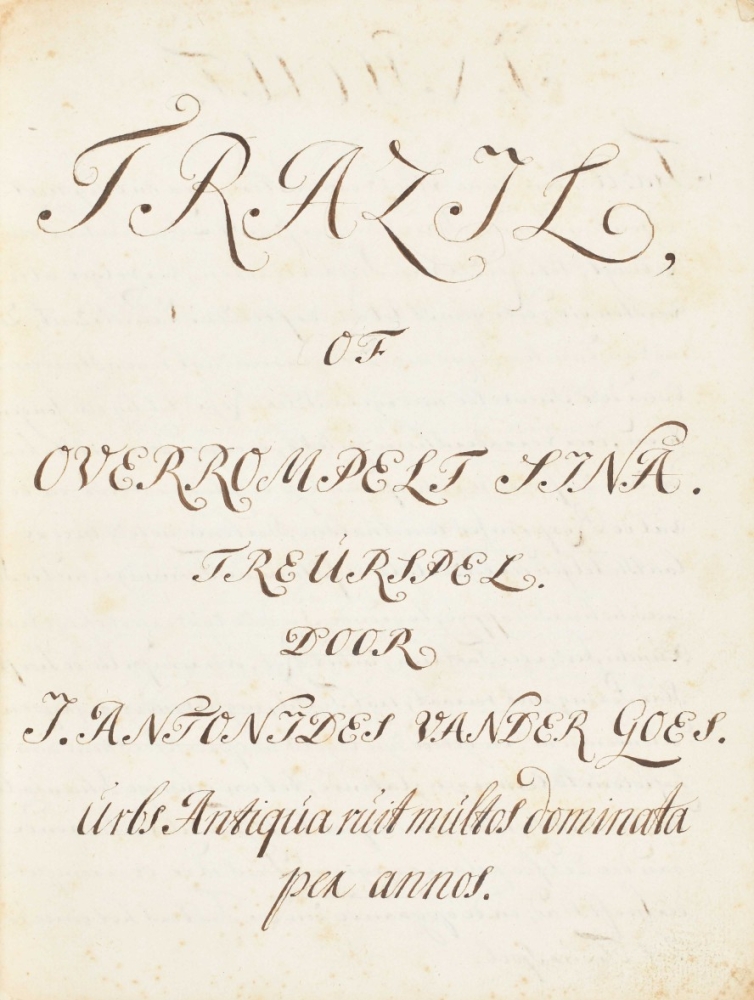 TRAZIL,
OF
OVERROMPELT SINA.
TREÚRSPEL.
DOOR
J. ANTONIDES VANDER GOES.
Úrbs Antiqúa rúit múltos dominata
per annos.